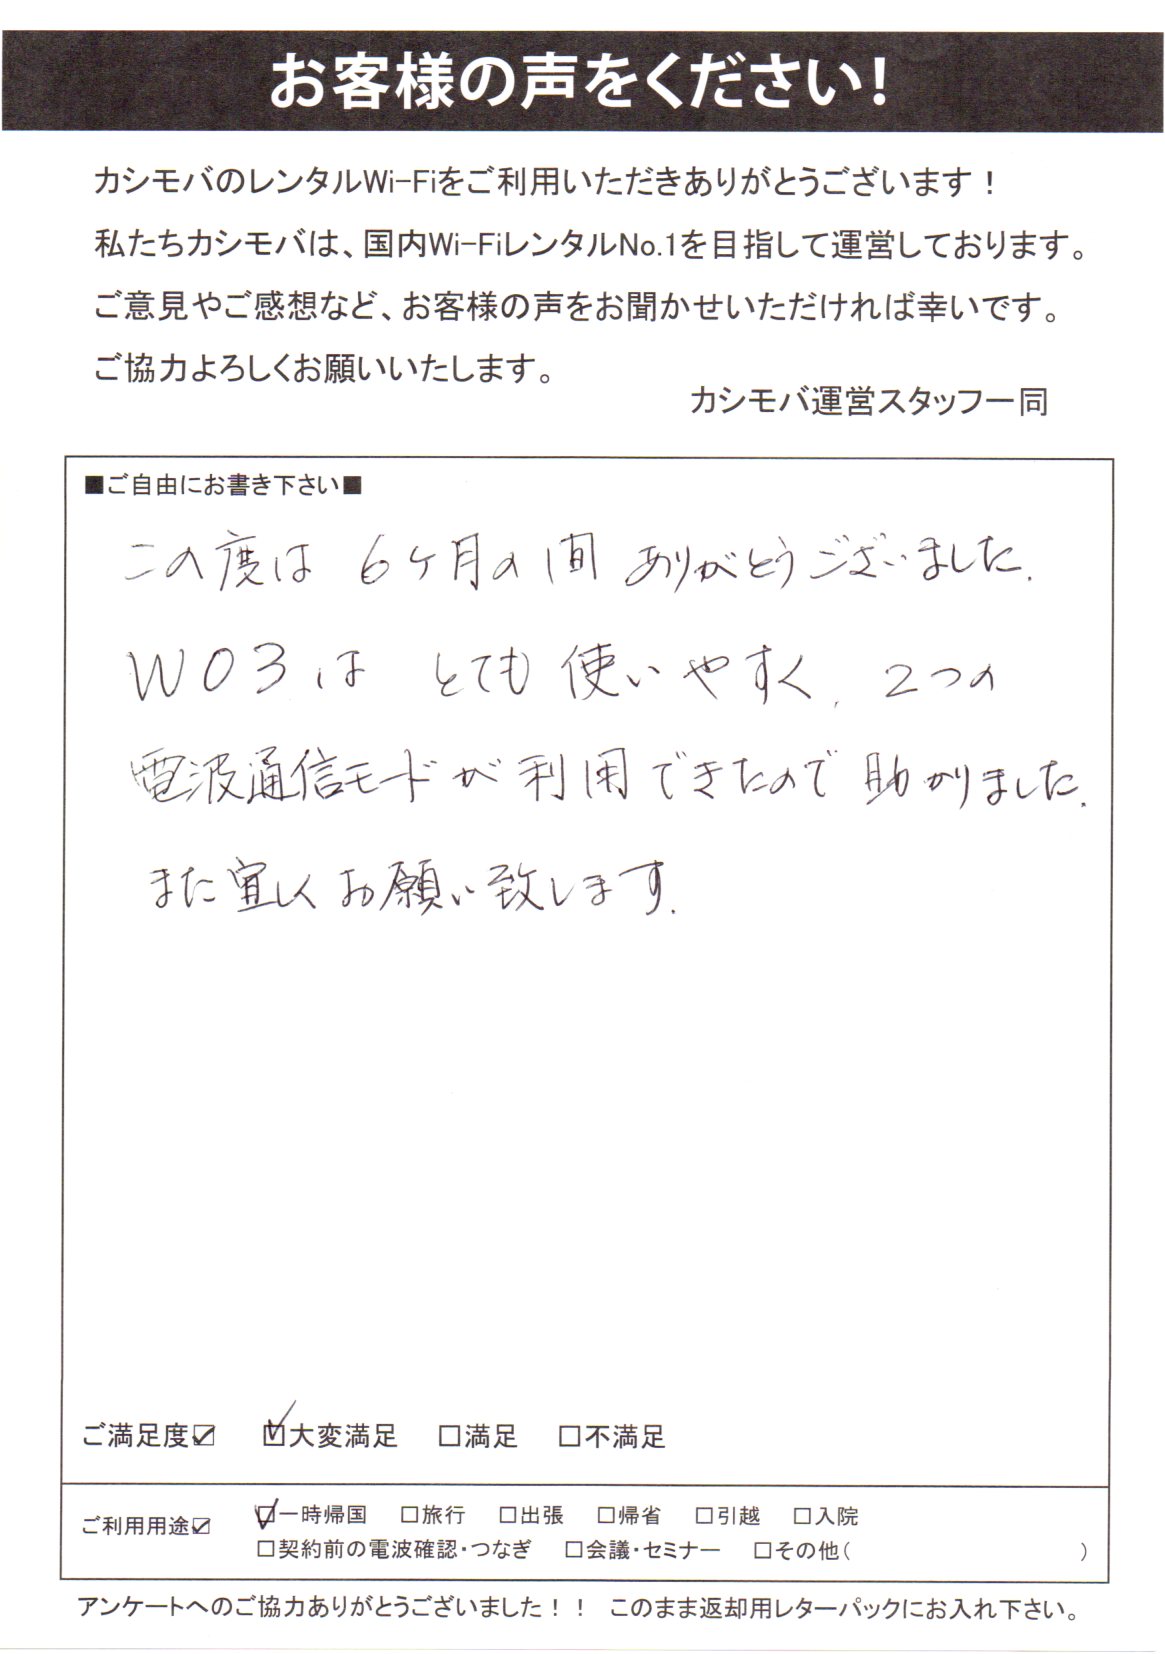 お客様の声をください!
カシモバのレンタルWi-Fiをご利用いただきありがとうございます!
私たちカシモバは、国内Wi-FiレンタルNo.1を目指して運営しております。
ご意見やご感想など、お客様の声をお聞かせいただければ幸いです。
ご協力よろしくお願いいたします。
カシモバ運営スタッフ一同
■ご自由にお書き下さい■
この度は 6ヶ月の間 ありがとうございました.
W03は とても 使いやすく, 2つの
電波通信モードが利用できたので助かりました.
また宜しくお願い致します.
ご満足度☑ ☑大変満足 □満足 □不満足
ご利用用途☑ ☑一時帰国 □旅行 □出張 □帰省 □引越 □入院
□契約前の電波確認・つなぎ □会議・セミナー □その他( )
アンケートへのご協力ありがとうございました!! このまま返却用レターパックにお入れ下さい。